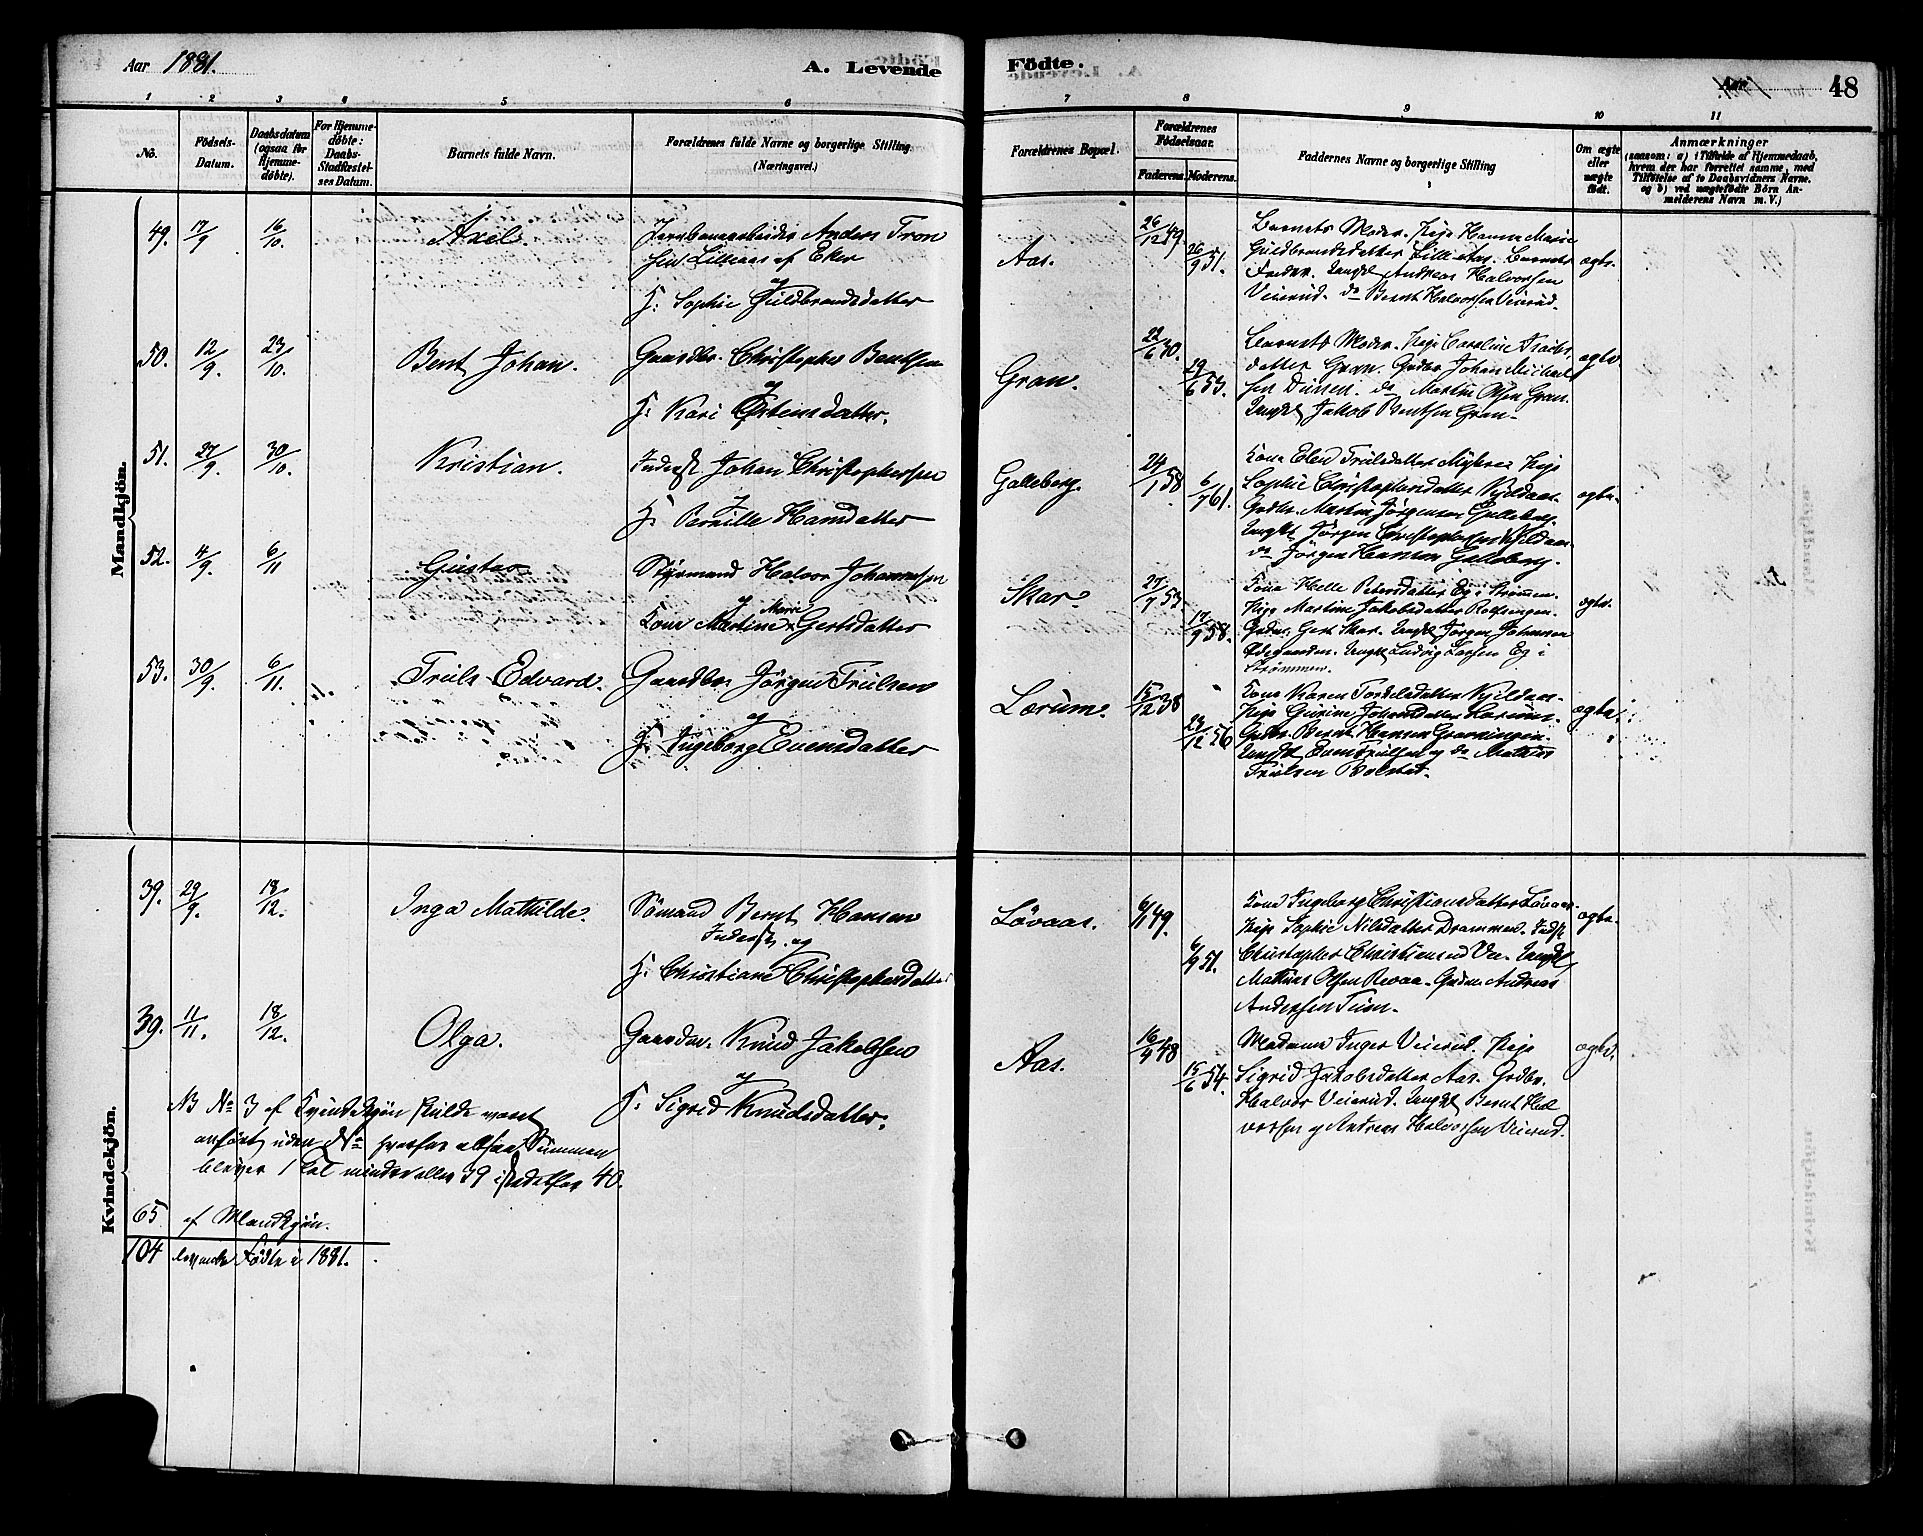 Aar 1881.
A. Levende Födte.
Aar
48
1 2 3 4 5 6 7 8 9 10 11
No.
Födsels-Datum.
Daabsdatum (ogsaa for Hjemme-döbte).
For Hjemme-döbte: Daabs-Stadfæstel-ses Datum.
Barnets fulde Navn.
Forældrenes fulde Navne og borgerlige Stilling. (Næringsvei.)
Forældrenes Bopæl.
Forældrenes Födselsaar.
Faderens. Moderens.
Faddernes Navne og borgerlige Stilling
Om ægte eller uægte födt.
Anmærkninger
(saasom: a) i Tilfælde af Hjemmedaab, hvem der har forrettet samme, med Tilföielse af to Daabsvidners Navne. og b) ved uægtefödte Börn An-melderens Navn m. V.)
Mandkjön.
49. 17/9 16/10. Axel. Jernbanearbeider Anders Tron
sen Lilleaas af Eker
og
H. Sophie Guldbrandsdatter
Aas. 26/12 49. 26/9 51.
Barnets Moder. Pige Hanne Marie
Guldbrandsdatter Lilleaas. Barnets
Fader. Ungkl Andreas Halvorsen
Veierud. do Bernt Halvorsen Veierud.
ægte.
50. 12/9. 23/10. Bent Johan. Gaardbr. Christopher Bentsen
og
H. Kari Østensdatter.
Gran. 22/6 30. 29/6 53.
Barnets Moder. Pige Caroline
datter Gran. Grdbr Johan Michael
sen do Martin Olsen Gran.
Ungkl Jakob Bentsen Gran.
ægte.
51. 27/9. 30/10. Kristian. Inderst. Johan Christophersen
og
H. Pernille Hansdatter
Galleberg. 24/1 58 6/7 61.
Kone Elen Trulsdatter Myhren Pige
Sophie Christophersdatter Kjeldaas.
Grdbr. Martin Jørgensen Galleberg.
Ungkl Jørgen Christophersen Kjeldaas.
do Jørgen Hansen Galleberg.
ægte.
52. 4/9. 6/11 Gustav Styrmand Halvor Johannesen
og Marie
Kone Martine Gertsdatter
Skar. 27/7 53. 17/9 58.
Kone Helle Petersdatter Eg i Strømm.
Pige Martine Jakobsdatter Rolfsengen.
Gert Skar. Ungkl Jørgen Johannsen
Ødegaarden. Ungkl Ludvig Larsen Eg i
Strømmen.
ægte.
53. 30/9. 6/11. Truls Edvard. Gaardbr Jörgen Trulsen
og
H. Ingeborg Evensdatter
Lærum. 15/12 38 23/12 56
Kone Karen Kjeldaas.
Pige Gurine Johansdatter Lærum.
Grdbr. Bernt Hansen Gravningen.
Ungkl Even Trulsen og do Mathias
Trulsen Bolstad.
ægte.
Kvindekjön.
39. 29/9. 18/12. Inga Mathilde. Sömand Bernt Hansen
Inderst. og
H. Christiane Christophersdatter
Lövaas. 6/1 49. 6/9 51.
Kone Ingeborg Christiansdatter Lövaas.
Pige Sophie Nilsdatter Drammen. Indst
Christopher Christiansen Ungkl
Mathias Olsen Revaa. Grdmd. Andreas
Andersen
ægte.
39. 11/11. 18/12. Olga. Gaardbr. Knud Jakobsen
og
H. Sigrid Knudsdatter.
Aas. 16/4 48 15/6 54.
Madame Inger Veierud. Pige
Sigrid Jakobsdatter Aas. Grdbr.
Halvor Veierud. Ungkl Bernt Hal
vorsen og Andreas Halvorsen Veierud.
ægte.
NB No 3 af Kvindekjön skulde været
anført uden No hvorfor altsaa Summen
bliver 1 Tal mindre eller 39 istedetfor 40.
65 af Mandkjön.
104 levende Födte i 1881.